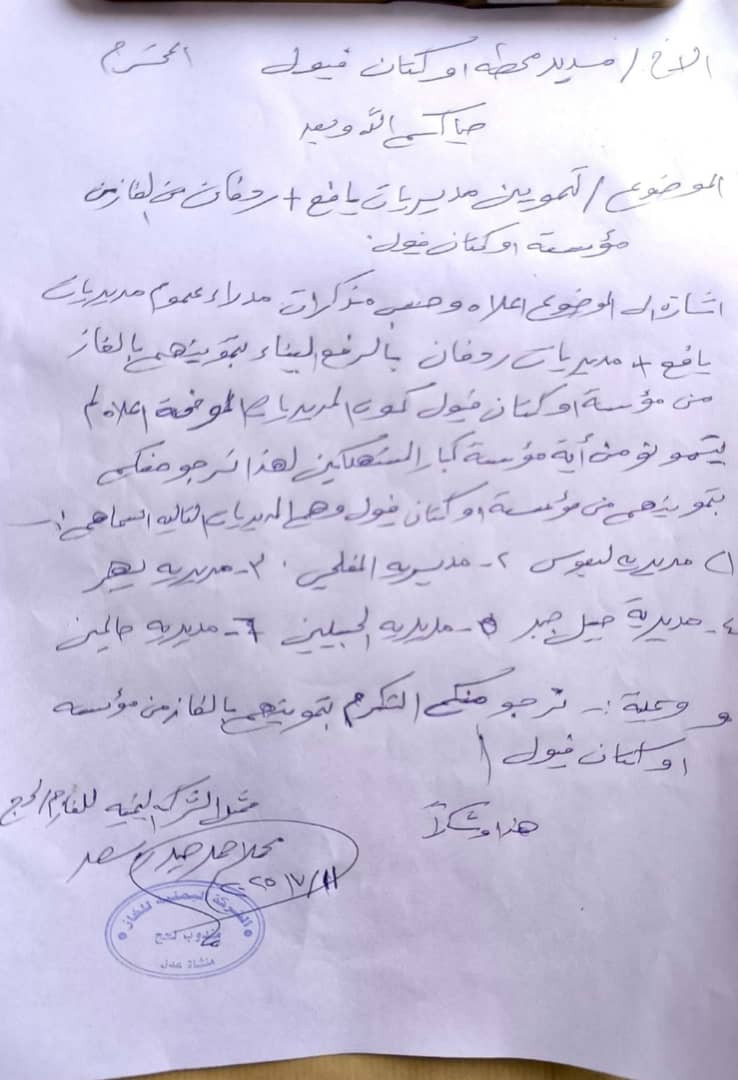 الاخ / مدير محطه اوكتان فيول المحترم
حياكم الله وبعد
الموضوع / تموين مديريات يافع + ردفان من الغاز من
مؤسسة اوكتان فيول.
اشارة الى الموضوع اعلاه وحسب مذكرات مدراء عموم مديريات
يافع + مديريات ردفان بالرفع الينا بتموينهم بالغاز
من مؤسسة اوكتان فيول كون المديريات الموضحة اعلاه لم
يتمونو من أية مؤسسة كبار المستهلكين لهذا نرجو منكم
بتموينهم من مؤسسة اوكتان فيول وهم المديريات التاليه اسماهم :-
١) مديريه لبعوس ٢- مديريه المفلحي ٣- مديريه يهر
٤- مديرية حبيل جبر ٥- مديريه الحبيلين ٦- مديريه حالمين
وعليه :- نرجو منكم التكرم بتموينهم بالغاز من مؤسسه
اوكتان فيول
هذا وشكراً
ممثل الشركه اليمنيه للغاز م/لحج
محمد احمد حيدره سعد
الشركة اليمنية للغاز
مندوب لحج
منشأة عدن